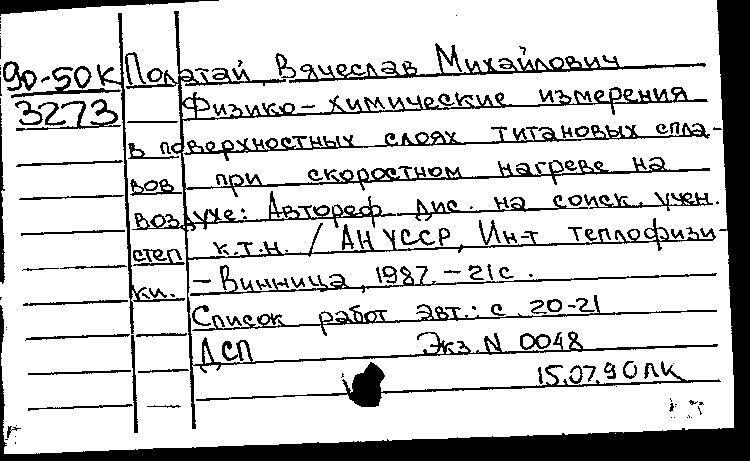 90-50К Полатай Вячеслав Михайлович
3273 Физико-химические измерения
в поверхностных слоях титановых спла-
вов при скоростном нагреве на
воздухе: Автореф. дис. на соиск. учен.
степ к.т.н. / АН УССР, Ин-т теплофизи-
ки. - Винница, 1987. - 21 с.
Список работ авт.: с. 20-21
ДСП Экз. N 0048
15.07.90 ЛК